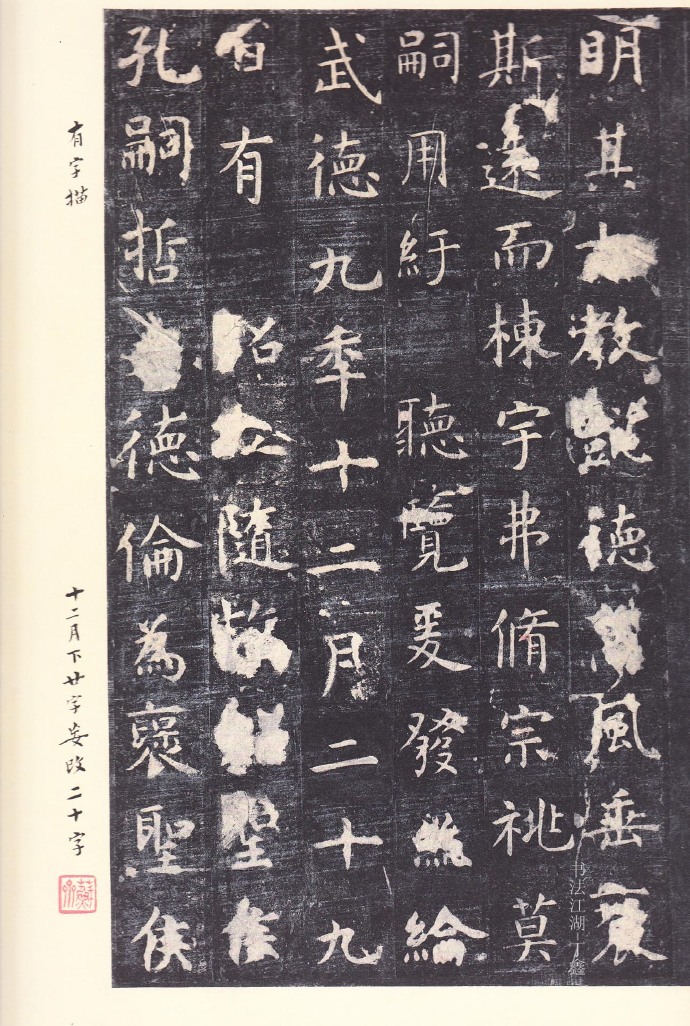 明其大教懿德風垂裒
斯遠而棟宇弗脩宗祧莫
嗣用紆聽覽爰發絲綸
武德九年十二月二十九
日有詔立隨故聖侯
孔嗣哲德倫為褒聖侯
有字描
十二月下廿字妄改二十字
书法江湖 丁鑫